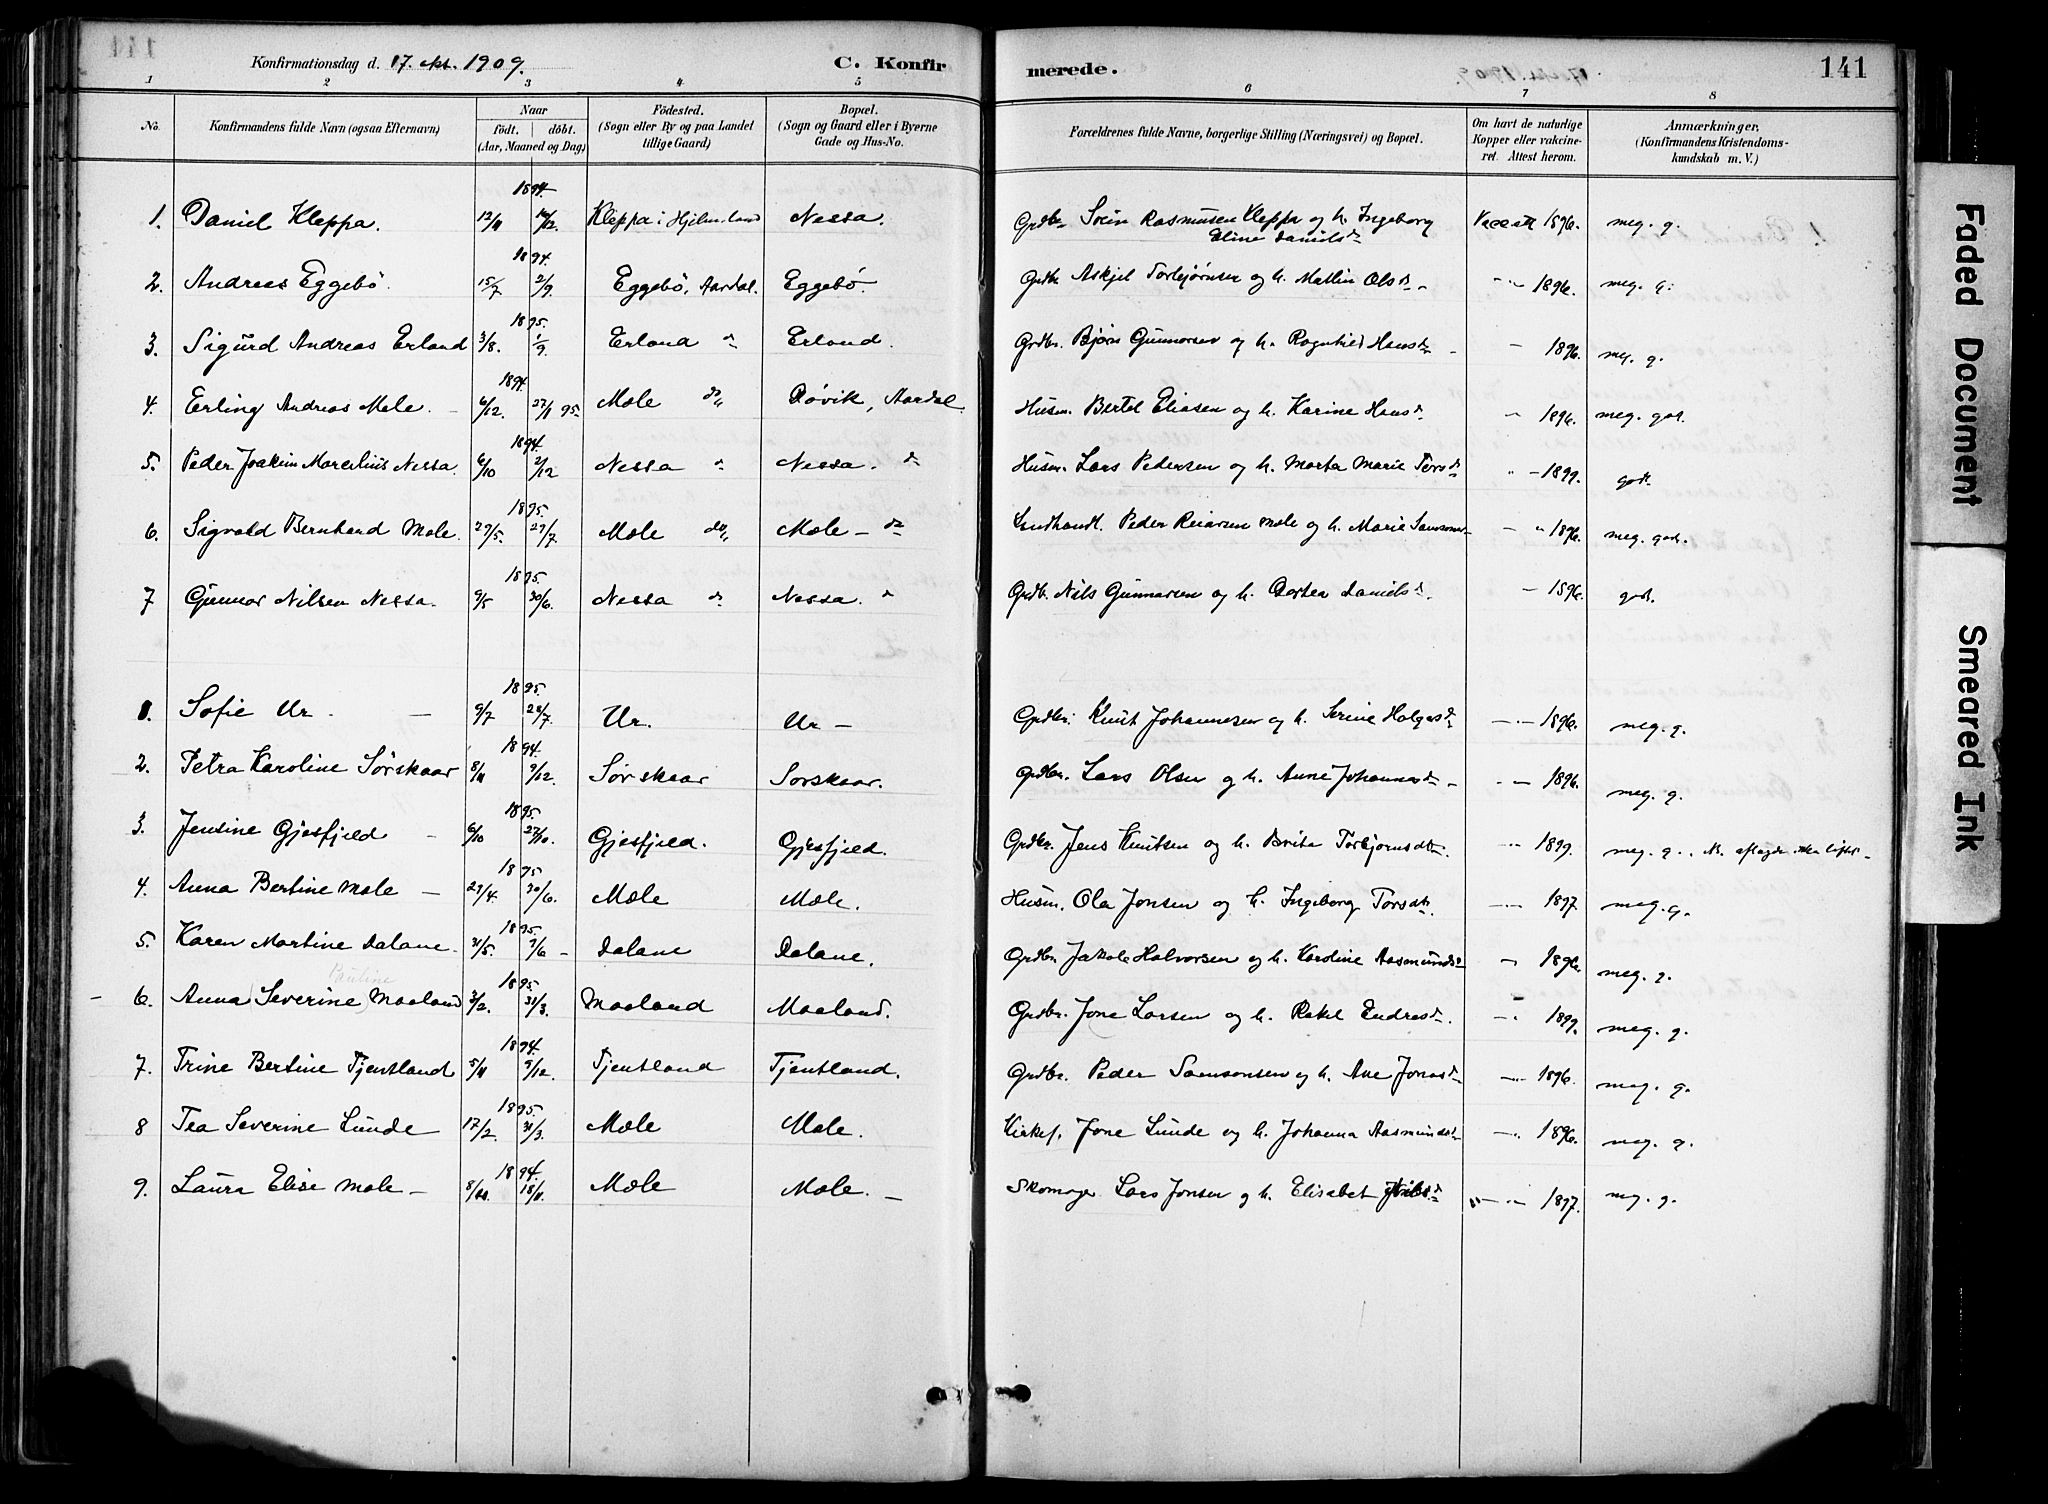 Konfirmationsdag d. 17. okt. 1909. C. Konfirmerede. 141
1 2 3 4 5 6 7 8
No. Konfirmandens fulde Navn (ogsaa Efternavn) Naar født. døbt. (Aar, Maaned og Dag) Födested. (Sogn eller By og paa Landet tillige Gaard) Bopæl. (Sogn og Gaard eller i Byerne Gade og Hus-No. Forældrenes fulde Navne, borgerlige Stilling (Næringsvei) og Bopæl. Om havt de naturlige Kopper eller vakcineret. Attest herom. Anmærkninger. (Konfirmandens Kristendomskundskab m. V.)
1894.
1. Daniel Kleppa. 12/11 16/12. Kleppa i Hjelmeland Nessa. Grdbr. Svein Rasmussen Kleppa og h. Ingeborg Eline Danielsdr. Vacc att 1896. meg. g.
1894.
2. Andreas Eggebö. 15/7 2/9. Eggebö, Aardal. Eggebö. Grdbr. Askjel Torbjørnsen og h. Mallin Olsdr. " - 1896. meg. g.
1895.
3. Sigurd Andreas Erland 3/8. 1/9. Erland do Erland. Grdbr. Bjørn Gunnarsen og h. Ragnhild Hansdr. - 1896. meg. g.
1894.
4. Erling Andreas Mæle. 6/12. 27/1 95. Mæle do Døvik, Aardal. Husm. Bertel Eliasen og h. Karine Hansdr. " 1896. meg. god.
1894.
5. Peder Joakim Marelius Nessa. 6/10 2/12 Nessa do Nessa. do Husm. Lars Pedersen og h. Marta Marie Torsdr " - 1899. god.
1895.
6. Sigvald Bernhard Mæle. 27/5. 27/7. Mæle do Mæle - do Landhandl. Peder Reiarsen Mæle og h. Marie Samsonsdr - " 1896. meg. god.
1895.
7 Gunnar Nilsen Nessa. 9/5 30/6. Nessa do Nessa. do Grdb. Nils Gunnarsen og h. Dortea Danielsdr. " - 1896. god.
1895.
1. Sofie Ur. - 9/7 28/7. Ur. Ur - Grdbr. Knut Johannesen og h. Serine Helgesdr - " - 1896. meg. g.
1894.
2. Petra Karoline Sørskaar 8/11 9/12. Sørskaar Sørskaar. Grdbr. Lars Olsen og h. Anne Johannesdr. - " - 1896. meg. g.
1895.
3. Jensine Gjesfjeld - 6/10 27/10. Gjesfjeld. Gjesfjeld. Grdbr. Jens Knutsen og h. Brita Torbjørnsdtr. - " - 1899. meg. g.
1895
4. Anna Bertine Mæle - 27/4. 30/6. Mæle Mæle. Husm. Ola Jonsen og h. Ingeborg Torsdtr. - " - 1897 meg. g.
1895.
5. Karen Martine Dalane. 31/5. 9/6 - Dalane Dalane. Grdbr. Jakob Halvorsen og h. Karoline Aasmundsdr - 1896. meg. g.
Pauline
1895.
- 6. Anna (Severine) Maaland 3/2. 31/3. Maaland Maaland. Grdbr. Jone Larsen og h. Rakel Endresdr. - " 1899. meg. g.
1894.
7. Trine Bertine Tjentland 5/11 9/12. Tjentland Tjentland. Grdbr. Peder Samsonsen og h. Ane Jonasdr - " - 1896. meg. g.
1895.
8 Tea Severine Lunde 17/2. 31/3. Mæle Mæle. Kirkes. Jone Lunde og h. Johanna Aasmundsdr - " 1896. meg. g.
1894.
9. Laura Elise Mæle - 18/11. Mæle Mæle. - Skomager Lars Jonsen og h. Elisabet Nilsdr " - " - 1897. meg. g.
Faded Document
Smeared Ink